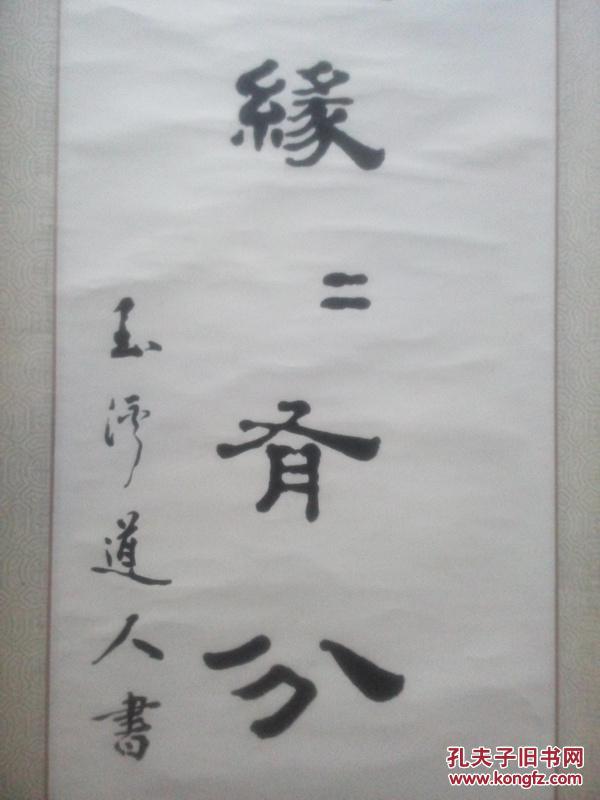 緣
二
有
分
玉道人書
孔夫子旧书网
www.kongfz.com